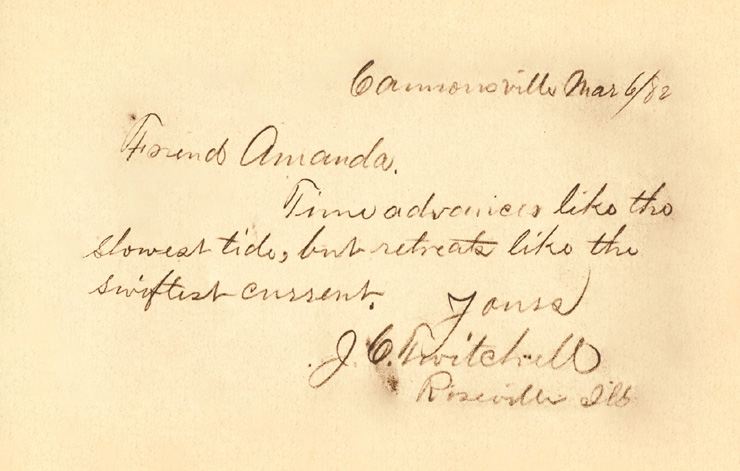 Cannonsville Mar 6/82
Friend Amanda.
Time advances like the
slowest tide, but retreats like the
swiftest current.   Yours
J. C. Twitchell
Roseville Ills